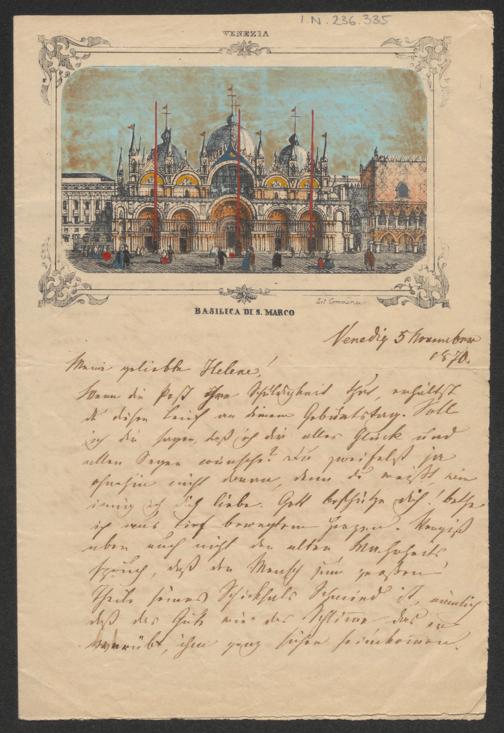 I.N. 236.335
VENEZIA
BASILICA DI S. MARCO
Venedig 5 November
1870.
Meine geliebte Helene!
Wenn die Post ihre Schuldigkeit thut, erhältst
du diesen Brief an deinem Geburtstag. Soll
ich dir sagen, daß ich dir alles Glück und
allen Segen wünsche? Du zweifelst ja
ohnehin nicht daran, denn du weißt wie
innig ich dich liebe. Gott beschütze dich! bethe
ich aus tief bewegtem Herzen. Vergiß
aber auch nicht den alten Wahrheits
spruch, daß der Mensch zum großen
Theile seines Schicksals Schmied ist, nämlich
daß das Gute wie das Schlimme das er
verübt, ihm ganz sicher heimkommen.